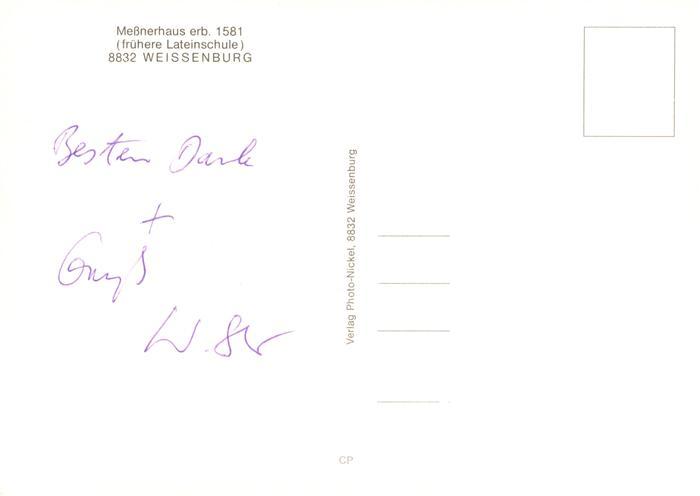 Meßnerhaus erb. 1581
(frühere Lateinschule)
8832 WEISSENBURG
Besten Dank
+
Gruß
W.
Verlag Photo-Nickel, 8832 Weissenburg
CP